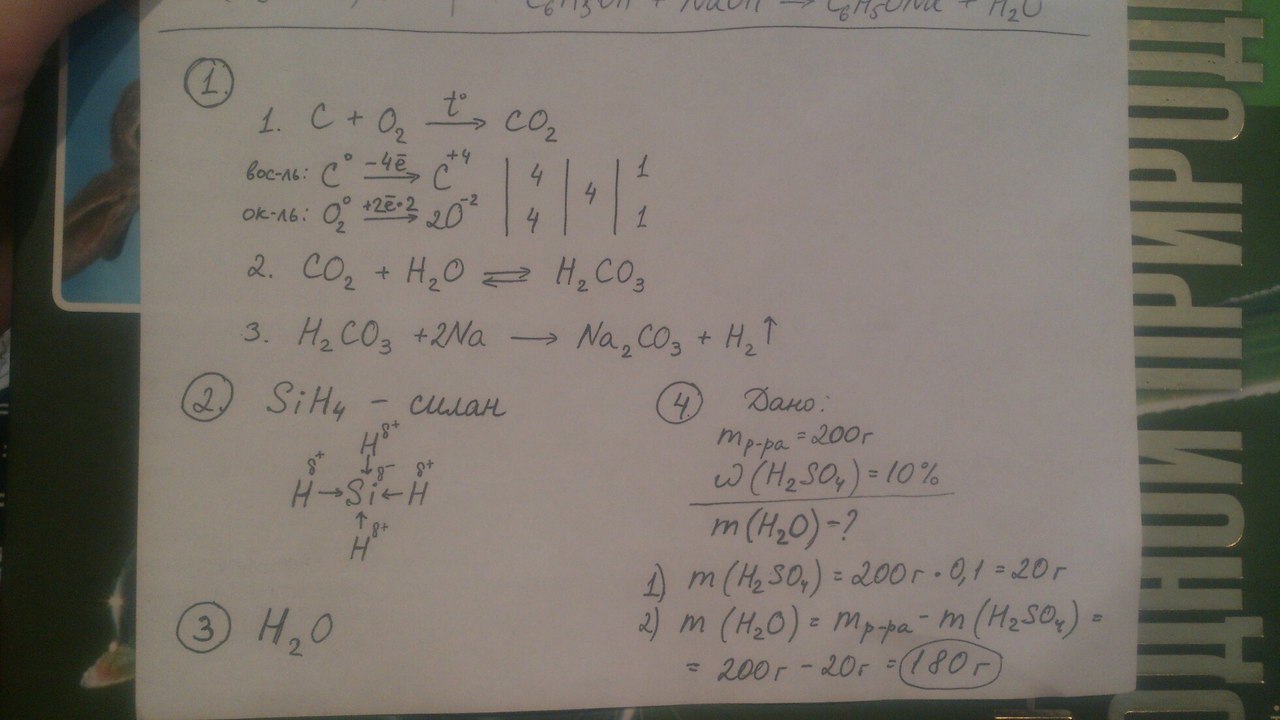 C6H5OH + NaOH → C6H5ONa + H2O
1.
1. C + O2 t° → CO2
вос-ль: C⁰ -4ē → C⁺⁴ | 4 | 4 | 1
ок-ль: O2⁰ +2ē·2 → 2O⁻² | 4 | | 1
2. CO2 + H2O ⇌ H2CO3
3. H2CO3 + 2Na → Na2CO3 + H2↑
2. SiH4 – силан
Hδ+
↓
Hδ+ → Siδ- ← Hδ+
↑
Hδ+
3 H2O
4 Дано:
mр-ра = 200г
ω(H2SO4) = 10%
m(H2O) - ?
1) m(H2SO4) = 200г · 0,1 = 20г
2) m(H2O) = mр-ра - m(H2SO4) =
= 200г - 20г = 180г
ОДНОЙ ПРИРОД